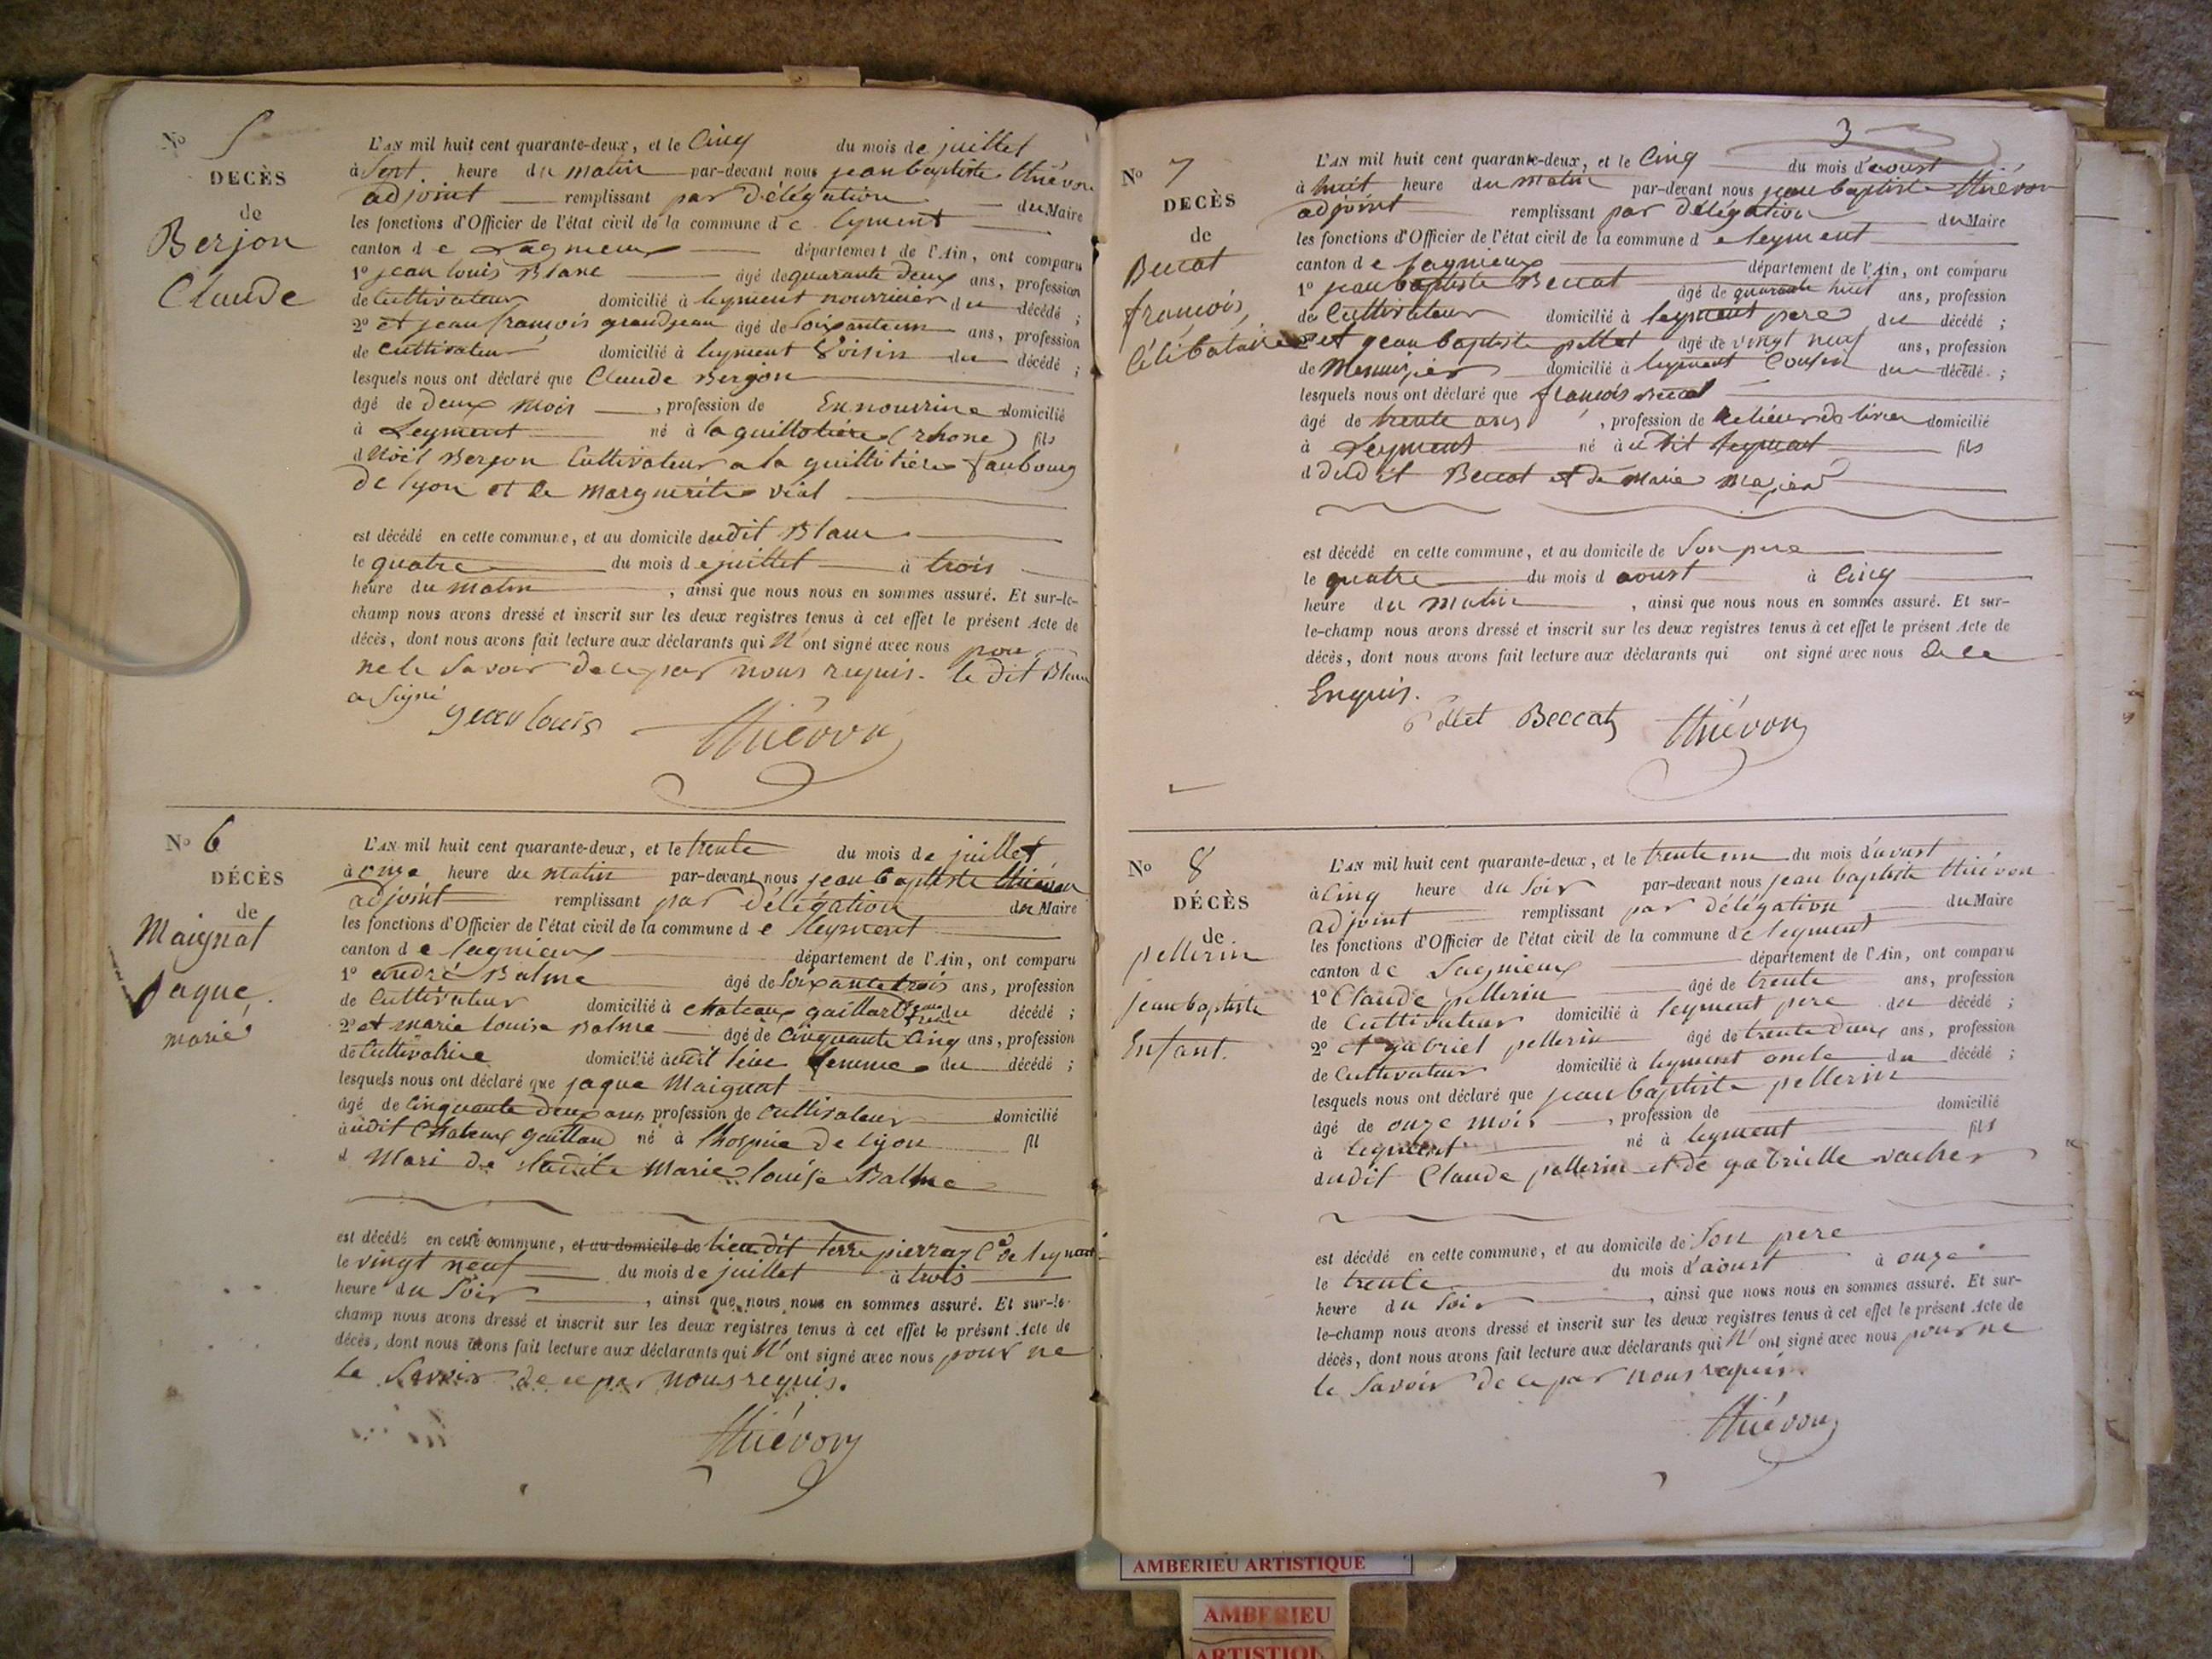 No 5
DECÈS
de
Berjon
Claude
L'AN mil huit cent quarante-deux, et le Cinq du mois de juillet
à Sept heure du matin par-devant nous jean baptiste Thiévon
adjoint remplissant par délégation du Maire
les fonctions d'Officier de l'état civil de la commune de leyment
canton de Lagnieux département de l'Ain, ont comparu
1o jean louis Blanc âgé de quarante deux ans, profession
de Cultivateur domicilié à leyment nourricier du décédé ;
2o et jean françois grandjean âgé de Soixante un ans, profession
de cultivateur domicilié à leyment Voisin du décédé ;
lesquels nous ont déclaré que Claude Berjon
âgé de deux mois , profession de En nourrice domicilié
à Leyment né à la guillotière (rhone) fils
d Noël Berjon Cultivateur a la guillotière faubourg
De lyon et de marguerite vial
est décédé en cette commune, et au domicile dudit Blanc
le quatre du mois de juillet à trois
heure du matin , ainsi que nous nous en sommes assuré. Et sur-le-
champ nous avons dressé et inscrit sur les deux registres tenus à cet effet le présent Acte de
décès, dont nous avons fait lecture aux déclarants qui N'ont signé avec nous pour
ne le Savoir de ce par nous requis. le dit Blanc
a signé
jean louis Thiévon
No 6
DÉCÈS
de
Maignat
jaque.
marié
L'AN mil huit cent quarante-deux, et le trente du mois de juillet
à onze heure du matin par-devant nous jean baptiste Thiévon
adjoint remplissant par délégation du Maire
les fonctions d'Officier de l'état civil de la commune de leyment
canton de lagnieux département de l'Ain, ont comparu
1o andré Balme âgé de Soixante trois ans, profession
de Cultivateur domicilié à chateaux gaillard du décédé ;
2o et marie louise Balme âgé de Cinquante Cinq ans, profession
de Cultivatrice domicilié audit lieu femme du décédé ;
lesquels nous ont déclaré que jaque Maignat
âgé de Cinquante deux ans, profession de cultivateur domicilié
audit Chateaux gaillard né à l'hospice de lyon fil
d Mari de ladite Marie louise Balme
est décédé en cette commune, et au domicile de lieu dit terre pierraz Cne de leyment
le vingt neuf du mois de juillet à trois
heure du Soir , ainsi que nous nous en sommes assuré. Et sur-le-
champ nous avons dressé et inscrit sur les deux registres tenus à cet effet le présent Acte de
décès, dont nous avons fait lecture aux déclarants qui N'ont signé avec nous pour ne
le Savoir de ce par nous requis.
Thiévon
3
No 7
DECÈS
de
Beccat
françois,
Célibataire
L'AN mil huit cent quarante-deux, et le Cinq du mois d'aoust
à huit heure du matin par-devant nous jean baptiste Thiévon
adjoint remplissant par délégation du Maire
les fonctions d'Officier de l'état civil de la commune de leyment
canton de lagnieux département de l'Ain, ont comparu
1o jean baptiste Beccat âgé de quarante huit ans, profession
de Cultivateur domicilié à leyment pere du décédé ;
2o et jean baptiste pellet âgé de vingt neuf ans, profession
de Menuisier domicilié à leyment Cousin du décédé ;
lesquels nous ont déclaré que françois Beccat
âgé de trente ans , profession de Relieur de livres domicilié
à Leyment né audit leyment fils
d dudit Beccat et de Marie
est décédé en cette commune, et au domicile de Son pere
le quatre du mois d aoust à Cinq
heure du Matin , ainsi que nous nous en sommes assuré. Et sur-
le-champ nous avons dressé et inscrit sur les deux registres tenus à cet effet le présent Acte de
décès, dont nous avons fait lecture aux déclarants qui ont signé avec nous de ce
Enquis.
Pellet Beccat Thiévon
No 8
DÉCÈS
de
pellerin
jean baptiste
Enfant.
L'AN mil huit cent quarante-deux, et le trente un du mois d'avust
à Cinq heure du Soir par-devant nous jean baptiste Thiévon
adjoint remplissant par délégation du Maire
les fonctions d'Officier de l'état civil de la commune de leyment
canton de Lagnieux département de l'Ain, ont comparu
1o Claude pellerin âgé de trente ans, profession
de Cultivateur domicilié à leyment pere du décédé ;
2o et gabriel pellerin âgé de trente deux ans, profession
de Cultivateur domicilié à leyment oncle du décédé ;
lesquels nous ont déclaré que jean baptiste pellerin
âgé de onze mois , profession de domicilié
à leyment né à leyment fils
dudit Claude pellerin et de gabrielle vacher
est décédé en cette commune, et au domicile de Son pere
le trente du mois d'aoust à onze
heure du Soir , ainsi que nous nous en sommes assuré. Et sur-
le-champ nous avons dressé et inscrit sur les deux registres tenus à cet effet le présent Acte de
décès, dont nous avons fait lecture aux déclarants qui N'ont signé avec nous pour ne
le Savoir de ce par nous requis.
Thiévon
AMBERIEU ARTISTIQUE
AMBERIEU
ARTISTIQU